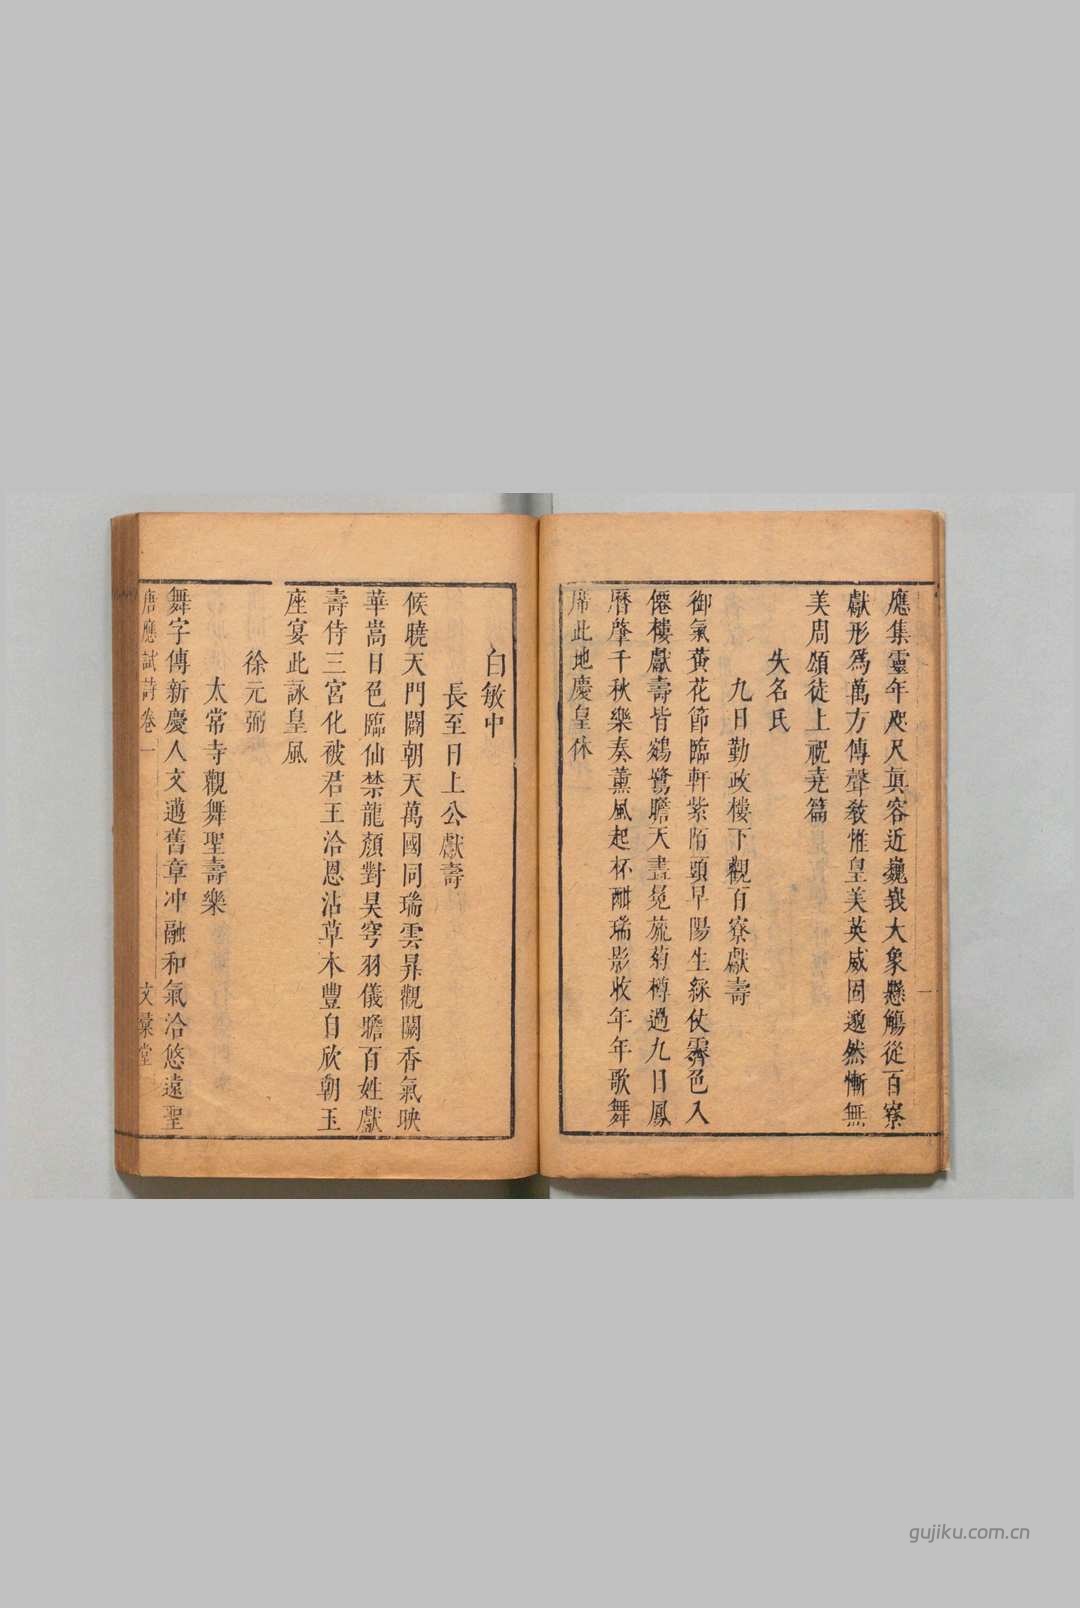 應集靈年咫尺真容近巍峩大象懸觴從百寮
獻形爲萬方傳聲教惟皇美英威固邈然慚無
美周頌徒上祝堯篇
失名氏
九日勤政樓下觀百寮獻壽
御氣黃花節臨軒紫陌頭早陽生綵仗霽色入
僊樓獻壽皆鵷鷺瞻天盡冕旒菊樽過九日鳳
曆肇千秋樂奏薰風起杯酣瑞影收年年歌舞
席此地慶皇休
白敏中
長至日上公獻壽
候曉天門闢朝天萬國同瑞雲昇觀闕香氣映
華嵩日色臨仙禁龍顏對昊穹羽儀瞻百姓獻
壽侍三宮化被君王洽恩沾草木豐自欣朝玉
座宴此詠皇風
徐元弼
太常寺觀舞聖壽樂
舞字傳新慶人文邁舊章冲融和氣洽悠遠聖
唐應試詩卷一
文彙堂
gujiku.com.cn